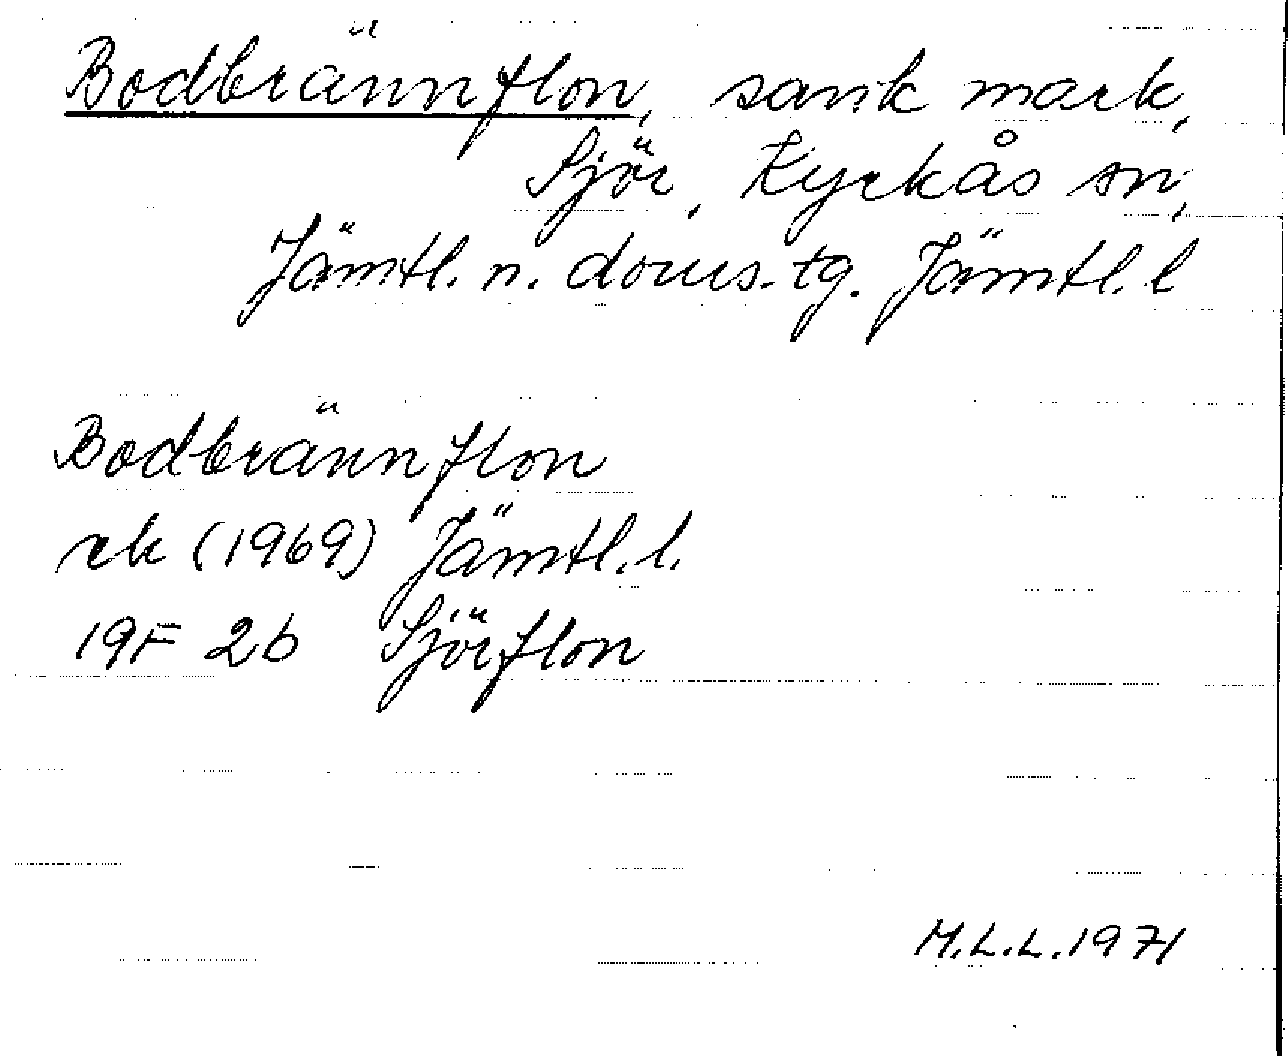 Bodbrännflon, sank mark,
Sjör, Kyrkås sn,
Jämtl. n. doms. tg. Jämtl. l
Bodbrännflon
rk (1969) Jämtl. l.
19F 2b Sjörflon
M.L.L. 1971